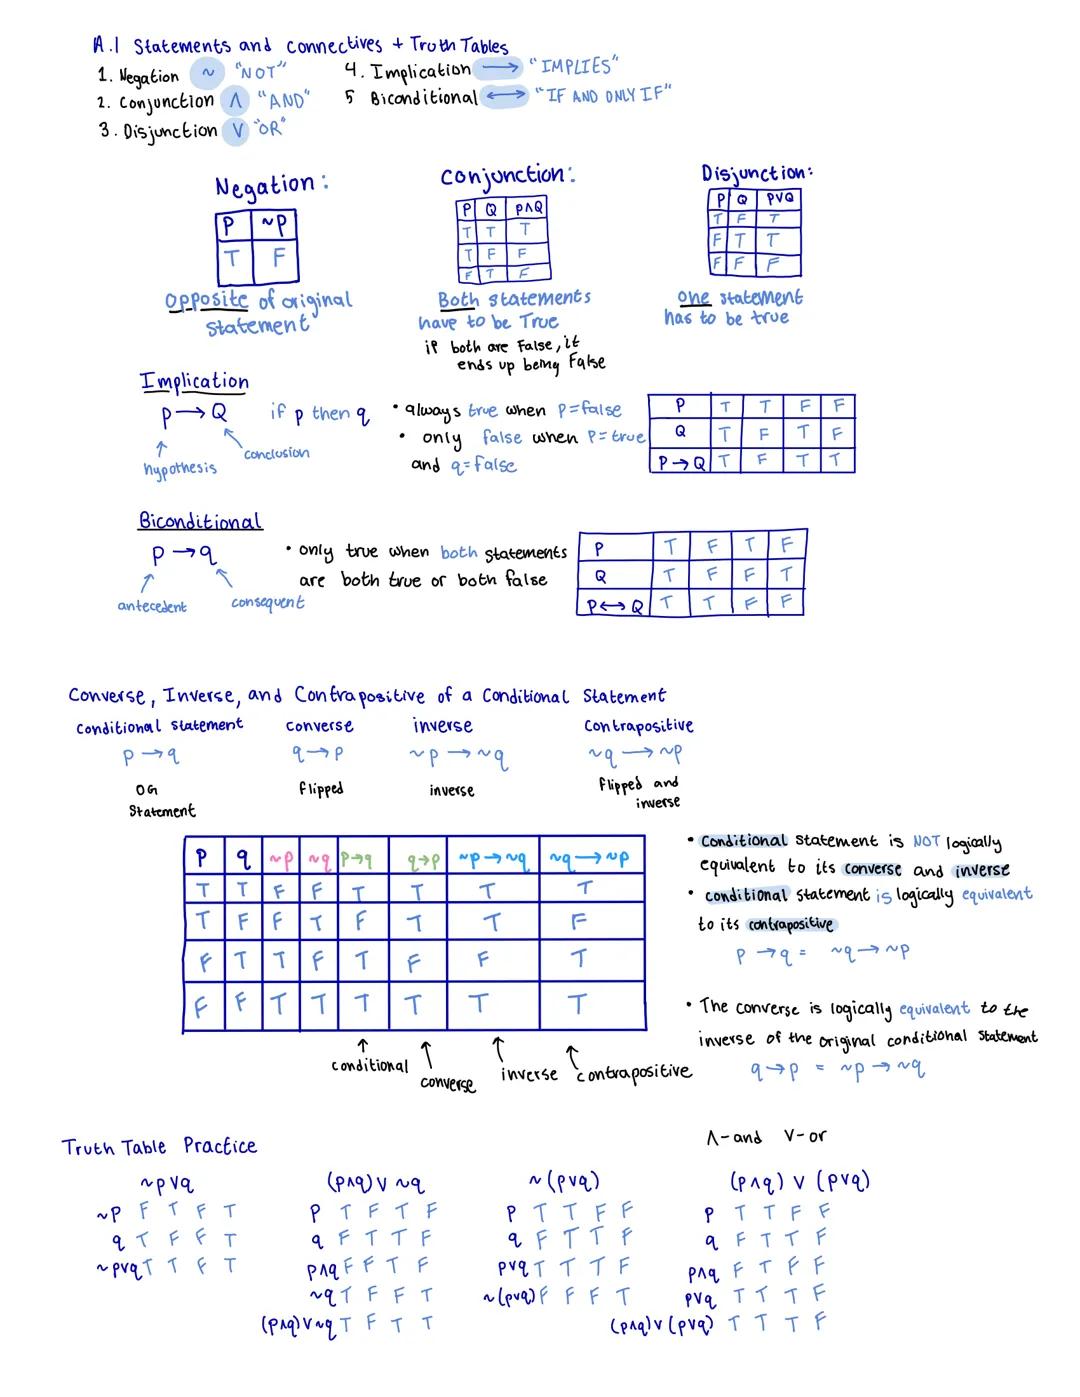 A.1 Statements and connectives + Truth Tables
1. Negation ~ "NOT" 4. Implication → "IMPLIES"
2. Conjunction ∧ "AND" 5 Biconditional ↔ "IF AND ONLY IF"
3. Disjunction ∨ "OR"
Negation:
P ~P
T F
opposite of original
statement
Conjunction:
P Q P∧Q
T T T
T F F
F T F
Both statements
have to be True
if both are False, it
ends up being False
Disjunction:
P Q P∨Q
T F T
F T T
F F F
one statement
has to be true
Implication
P → Q if p then q
hypothesis
conclusion
• always true when P=false
• only false when P=true
and q=false
P T T F F
Q T F T F
P → Q T F T T
Biconditional
P → q
antecedent consequent
• only true when both statements
are both true or both false
P T F T F
Q T F F T
P ↔ Q T T F F
Converse, Inverse, and Contrapositive of a Conditional Statement
conditional statement converse inverse Contrapositive
p → q q → p ~p → ~q ~q → ~p
OG
Statement
flipped
inverse
flipped and
inverse
P q ~p ~q p→q q→p ~p → ~q ~q → ~p
T T F F T T T T
T F F T F T T F
F T T F T F F T
F F T T T T T T
conditional
converse
inverse
contrapositive
• Conditional statement is NOT logically
equivalent to its converse and inverse
• conditional statement is logically equivalent
to its contrapositive
p → q = ~q → ~p
• The converse is logically equivalent to the
inverse of the original conditional statement
q → p = ~p → ~q
Truth Table Practice
∧-and ∨-or
~p∨q
~P F T F T
q T F F T
~p∨q T T F T
(p∧q)∨ ~q
P T F T F
q F T T F
p∧q F F T F
~q T F F T
(p∧q)∨~q T F T T
~(p∨q)
P T T F F
q F T T F
p∨q T T T F
~(p∨q) F F F T
(p∧q) ∨ (p∨q)
P T T F F
q F T T F
p∧q F T F F
p∨q T T T F
(p∧q)∨(p∨q) T T T F